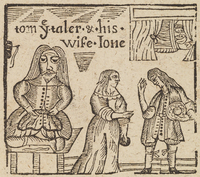 tom Stoler & his
wife Ione